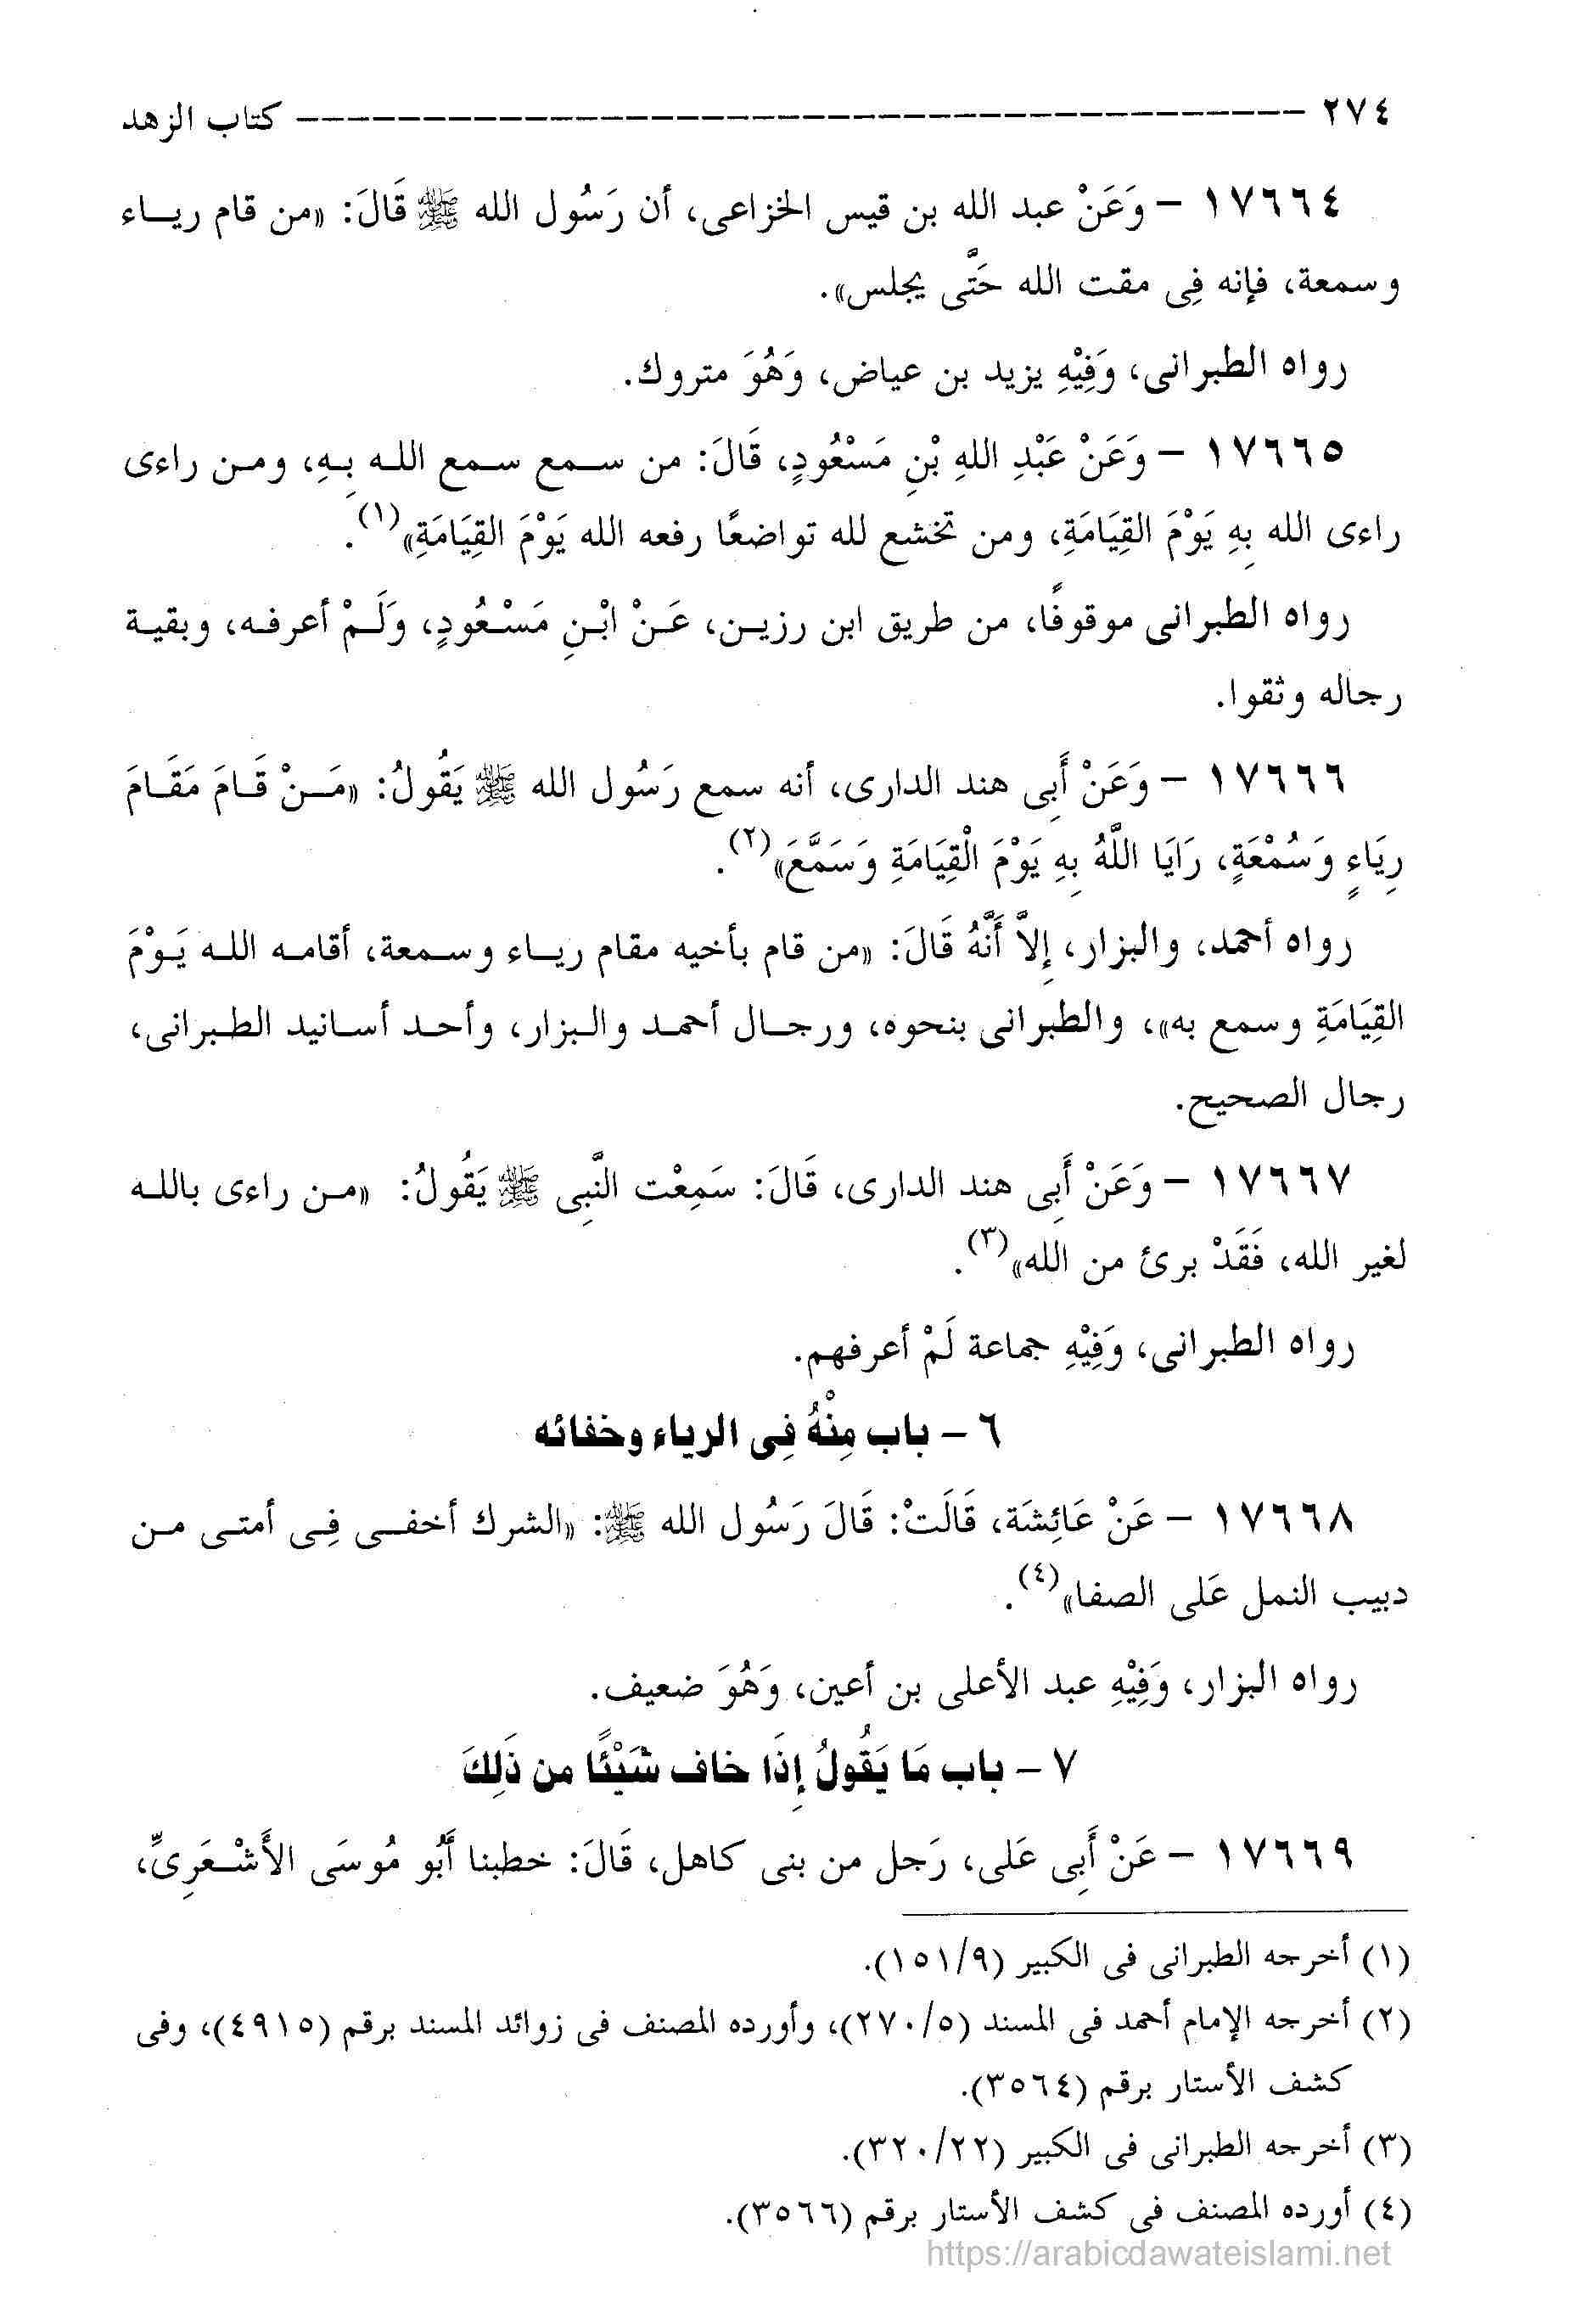 ٢٧٤ ---------------------------------------- كتاب الزهد
١٧٦٦٤ – وَعَنْ عبد الله بن قيس الخزاعى، أن رَسُول الله ﷺ قَالَ: «من قام ريـاء
وسمعة، فإنه فِى مقت الله حَتَّى يجلس».
رواه الطبرانى، وَفِيْهِ يزيد بن عياض، وَهُوَ متروك.
١٧٦٦٥ – وَعَنْ عَبْدِ اللهِ بْنِ مَسْعُودٍ، قَالَ: من سـمع سـمع اللـه بِـهِ، ومـن راءى
راءى الله بِهِ يَوْمَ القِيَامَةِ، ومن تخشع لله تواضعًا رفعه الله يَوْمَ القِيَامَةِ»(١).
رواه الطبرانى موقوفًا، من طريق ابن رزيـن، عَـنْ ابْـنِ مَسْـعُودٍ، وَلَـمْ أعرفـه، وبقيـة
رجاله وثقوا.
١٧٦٦٦ – وَعَنْ أَبِى هند الدارى، أنه سمع رَسُول الله ﷺ يَقُولُ: «مَـنْ قَـامَ مَقَـامَ
رِيَاءٍ وَسُمْعَةٍ، رَايَا اللَّهُ بِهِ يَوْمَ الْقِيَامَةِ وَسَمَّعَ»(٢).
رواه أحمد، والبزار، إِلاَّ أَنَّهُ قَالَ: «من قام بأخيه مقام ريـاء وسـمعة، أقامـه اللـه يَـوْمَ
القِيَامَةِ وسمع به»، والطبرانى بنحوه، ورجـال أحمـد والـبزار، وأحـد أسـانيد الطـبرانى،
رجال الصحيح.
١٧٦٦٧ – وَعَنْ أَبِى هند الدارى، قَالَ: سَمِعْت النَّبِى ﷺ يَقُولُ: «مـن راءى باللـه
لغير الله، فَقَدْ برئ من الله»(٣).
رواه الطبرانى، وَفِيْهِ جماعة لَمْ أعرفهم.
٦ – باب مِنْهُ فِى الرياء وخفائه
١٧٦٦٨ – عَنْ عَائِشَة، قَالَتْ: قَالَ رَسُول الله ﷺ: «الشرك أخفـى فِـى أمتـى مـن
دبيب النمل عَلى الصفا»(٤).
رواه البزار، وَفِيْهِ عبد الأعلى بن أعين، وَهُوَ ضعيف.
٧ – باب مَا يَقُولُ إِذَا خاف شَيْئًا من ذَلِكَ
١٧٦٦٩ – عَنْ أَبِى عَلى، رَجل من بنى كاهل، قَالَ: خطبنا أَبُو مُوسَى الأَشْـعَرِىِّ،
(١) أخرجه الطبرانى فى الكبير (١٥١/٩).
(٢) أخرجه الإمام أحمد فى المسند (٢٧٠/٥)، وأورده المصنف فى زوائد المسند برقم (٤٩١٥)، وفى
كشف الأستار برقم (٣٥٦٤).
(٣) أخرجه الطبرانى فى الكبير (٣٢٠/٢٢).
(٤) أورده المصنف فى كشف الأستار برقم (٣٥٦٦).
https://arabicdawateislami.net